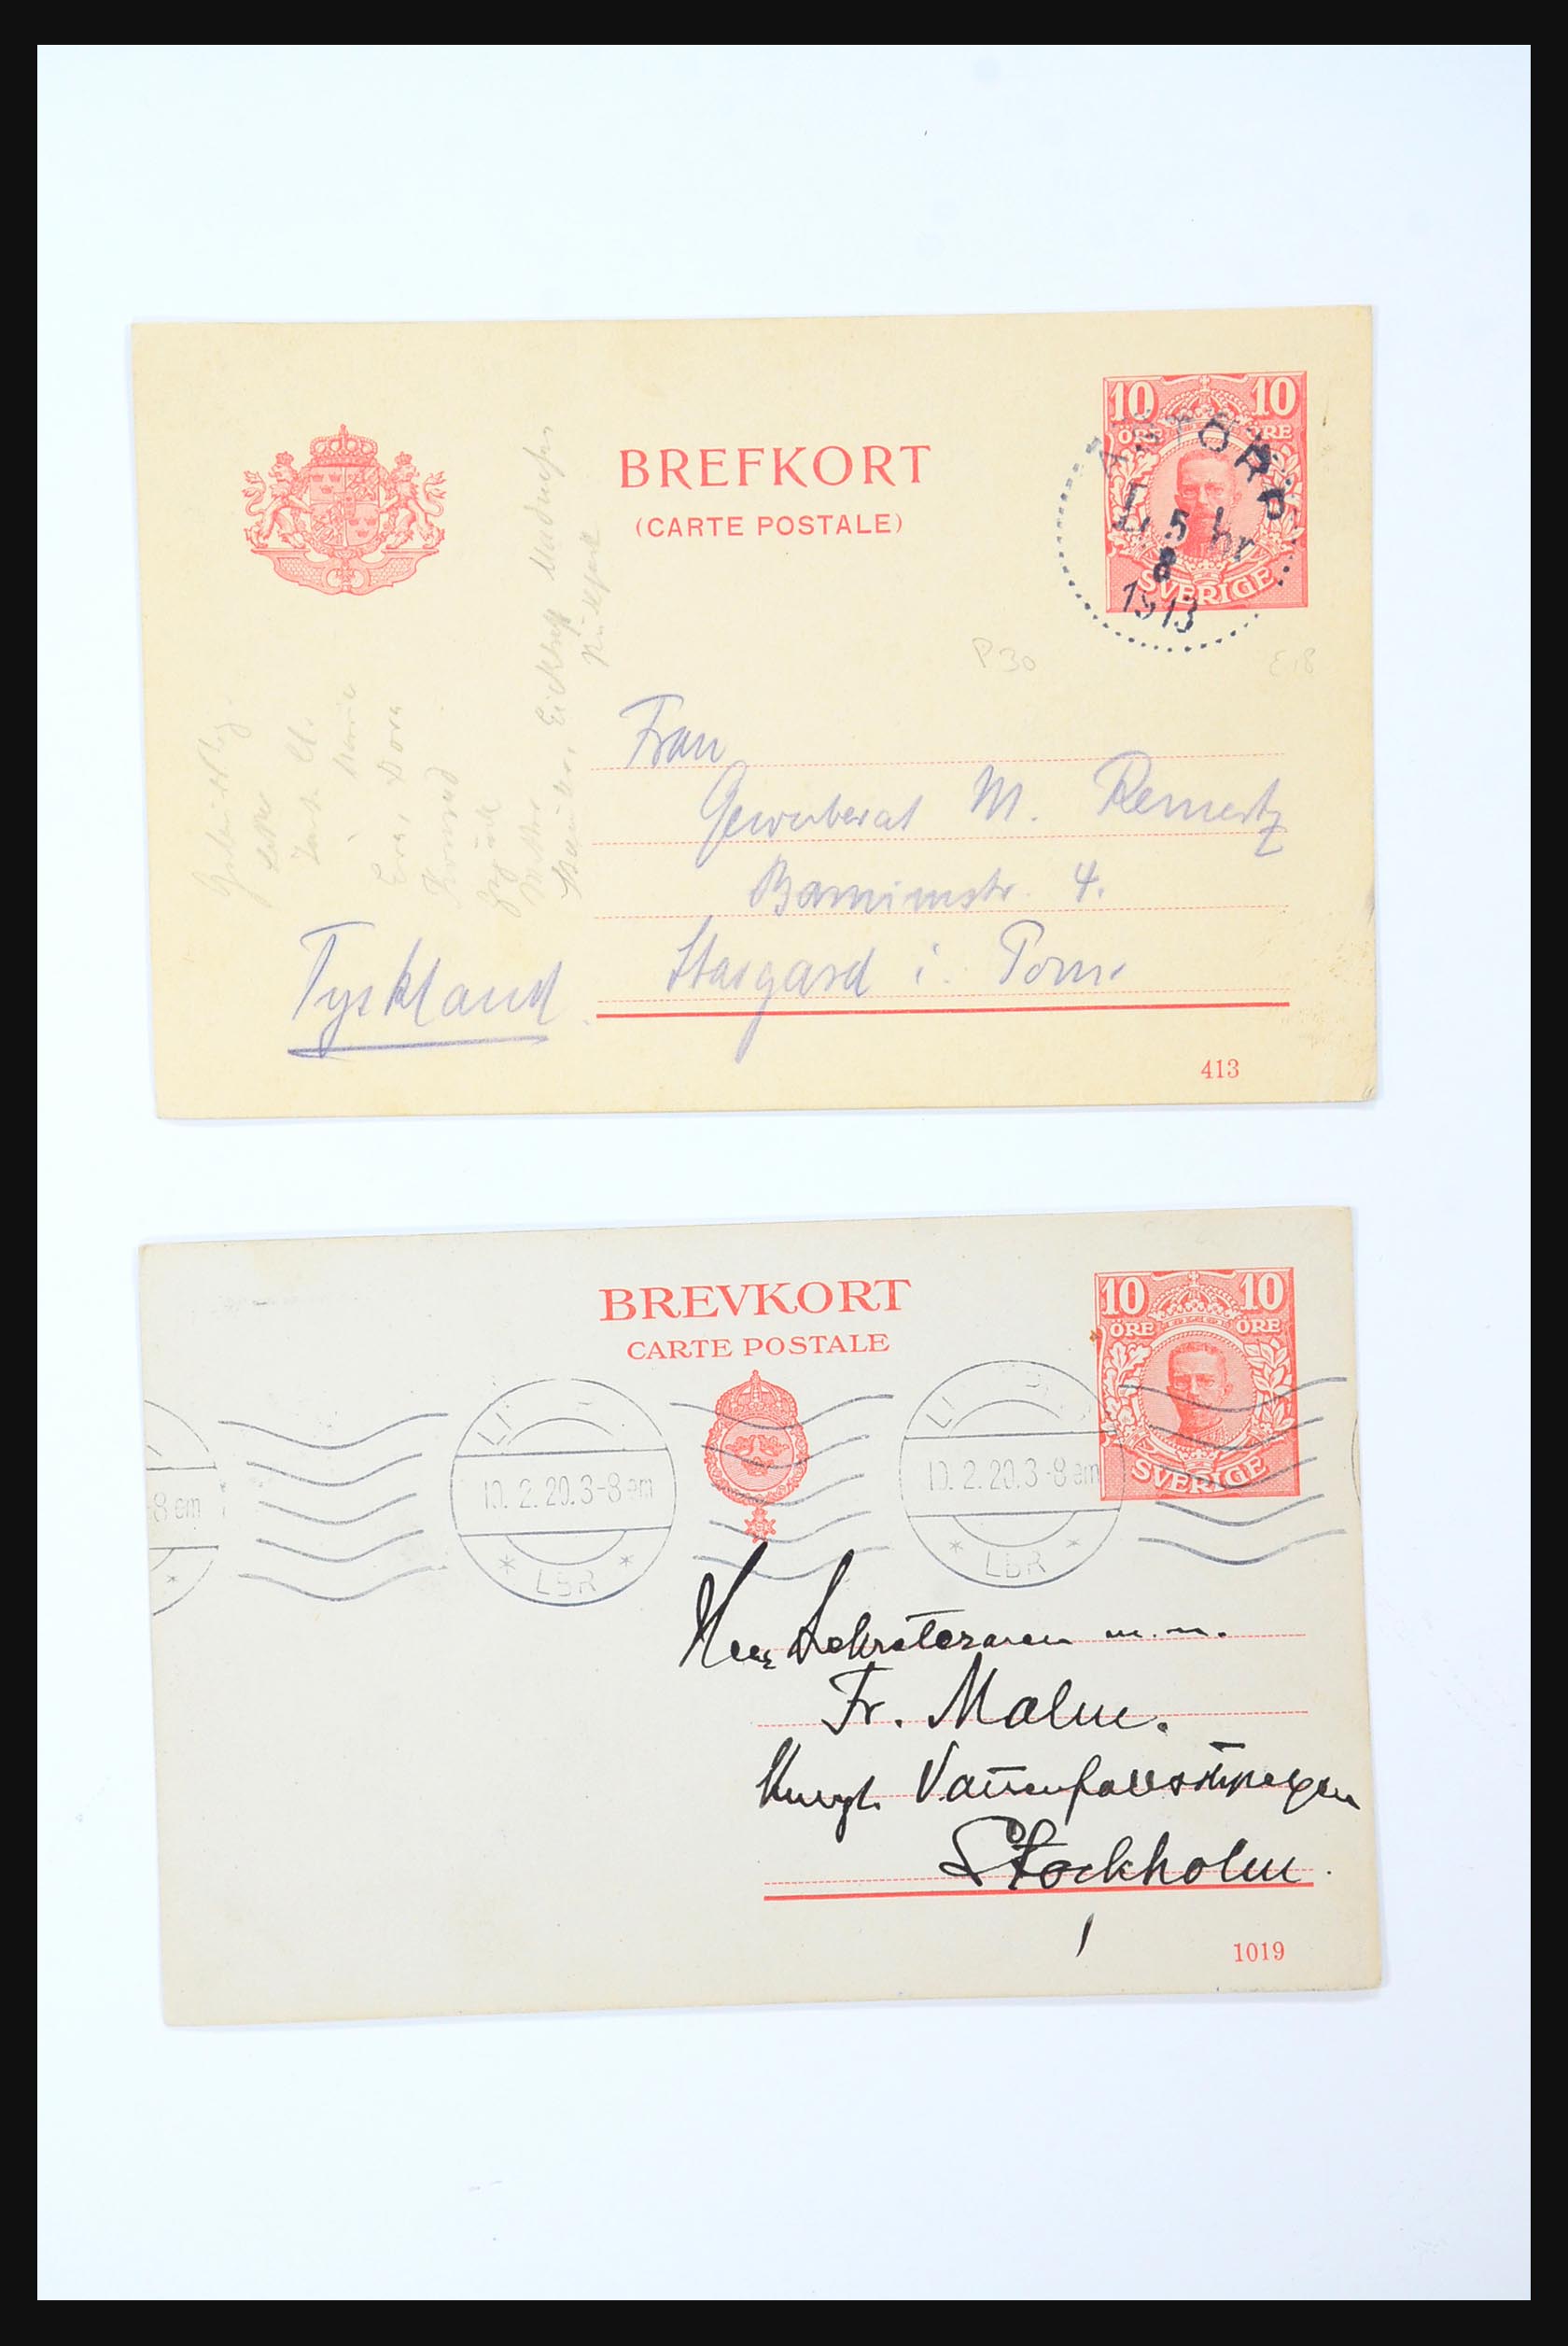 10 10
ÖRE ÖRE
SVERIGE
ÅSTORP
5
8
1913
BREFKORT
(CARTE POSTALE)
P30
Frau
Gewerberat M. Remertz
Barnimstr. 4.
Stargard i. Pom.
Tyskland
Eva, Dora
413
BREVKORT
CARTE POSTALE
10 10
ÖRE ÖRE
SVERIGE
LI
10.2.20.3-8 em
LBR
LI
10.2.20.3-8 em
LBR
-8 em
Herr Sekreteraren m.m.
Fr. Malm.
Kungl. Vattenfallsstyrelsen
Stockholm
1019